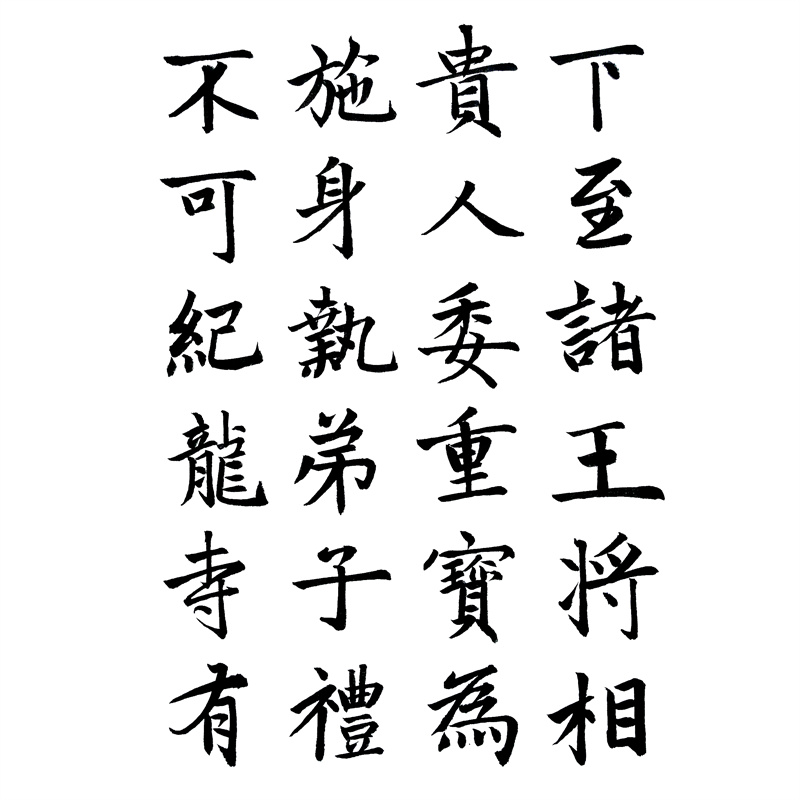 下至諸王将相
貴人委重寳為
施身執弟子禮
不可紀龍寺有